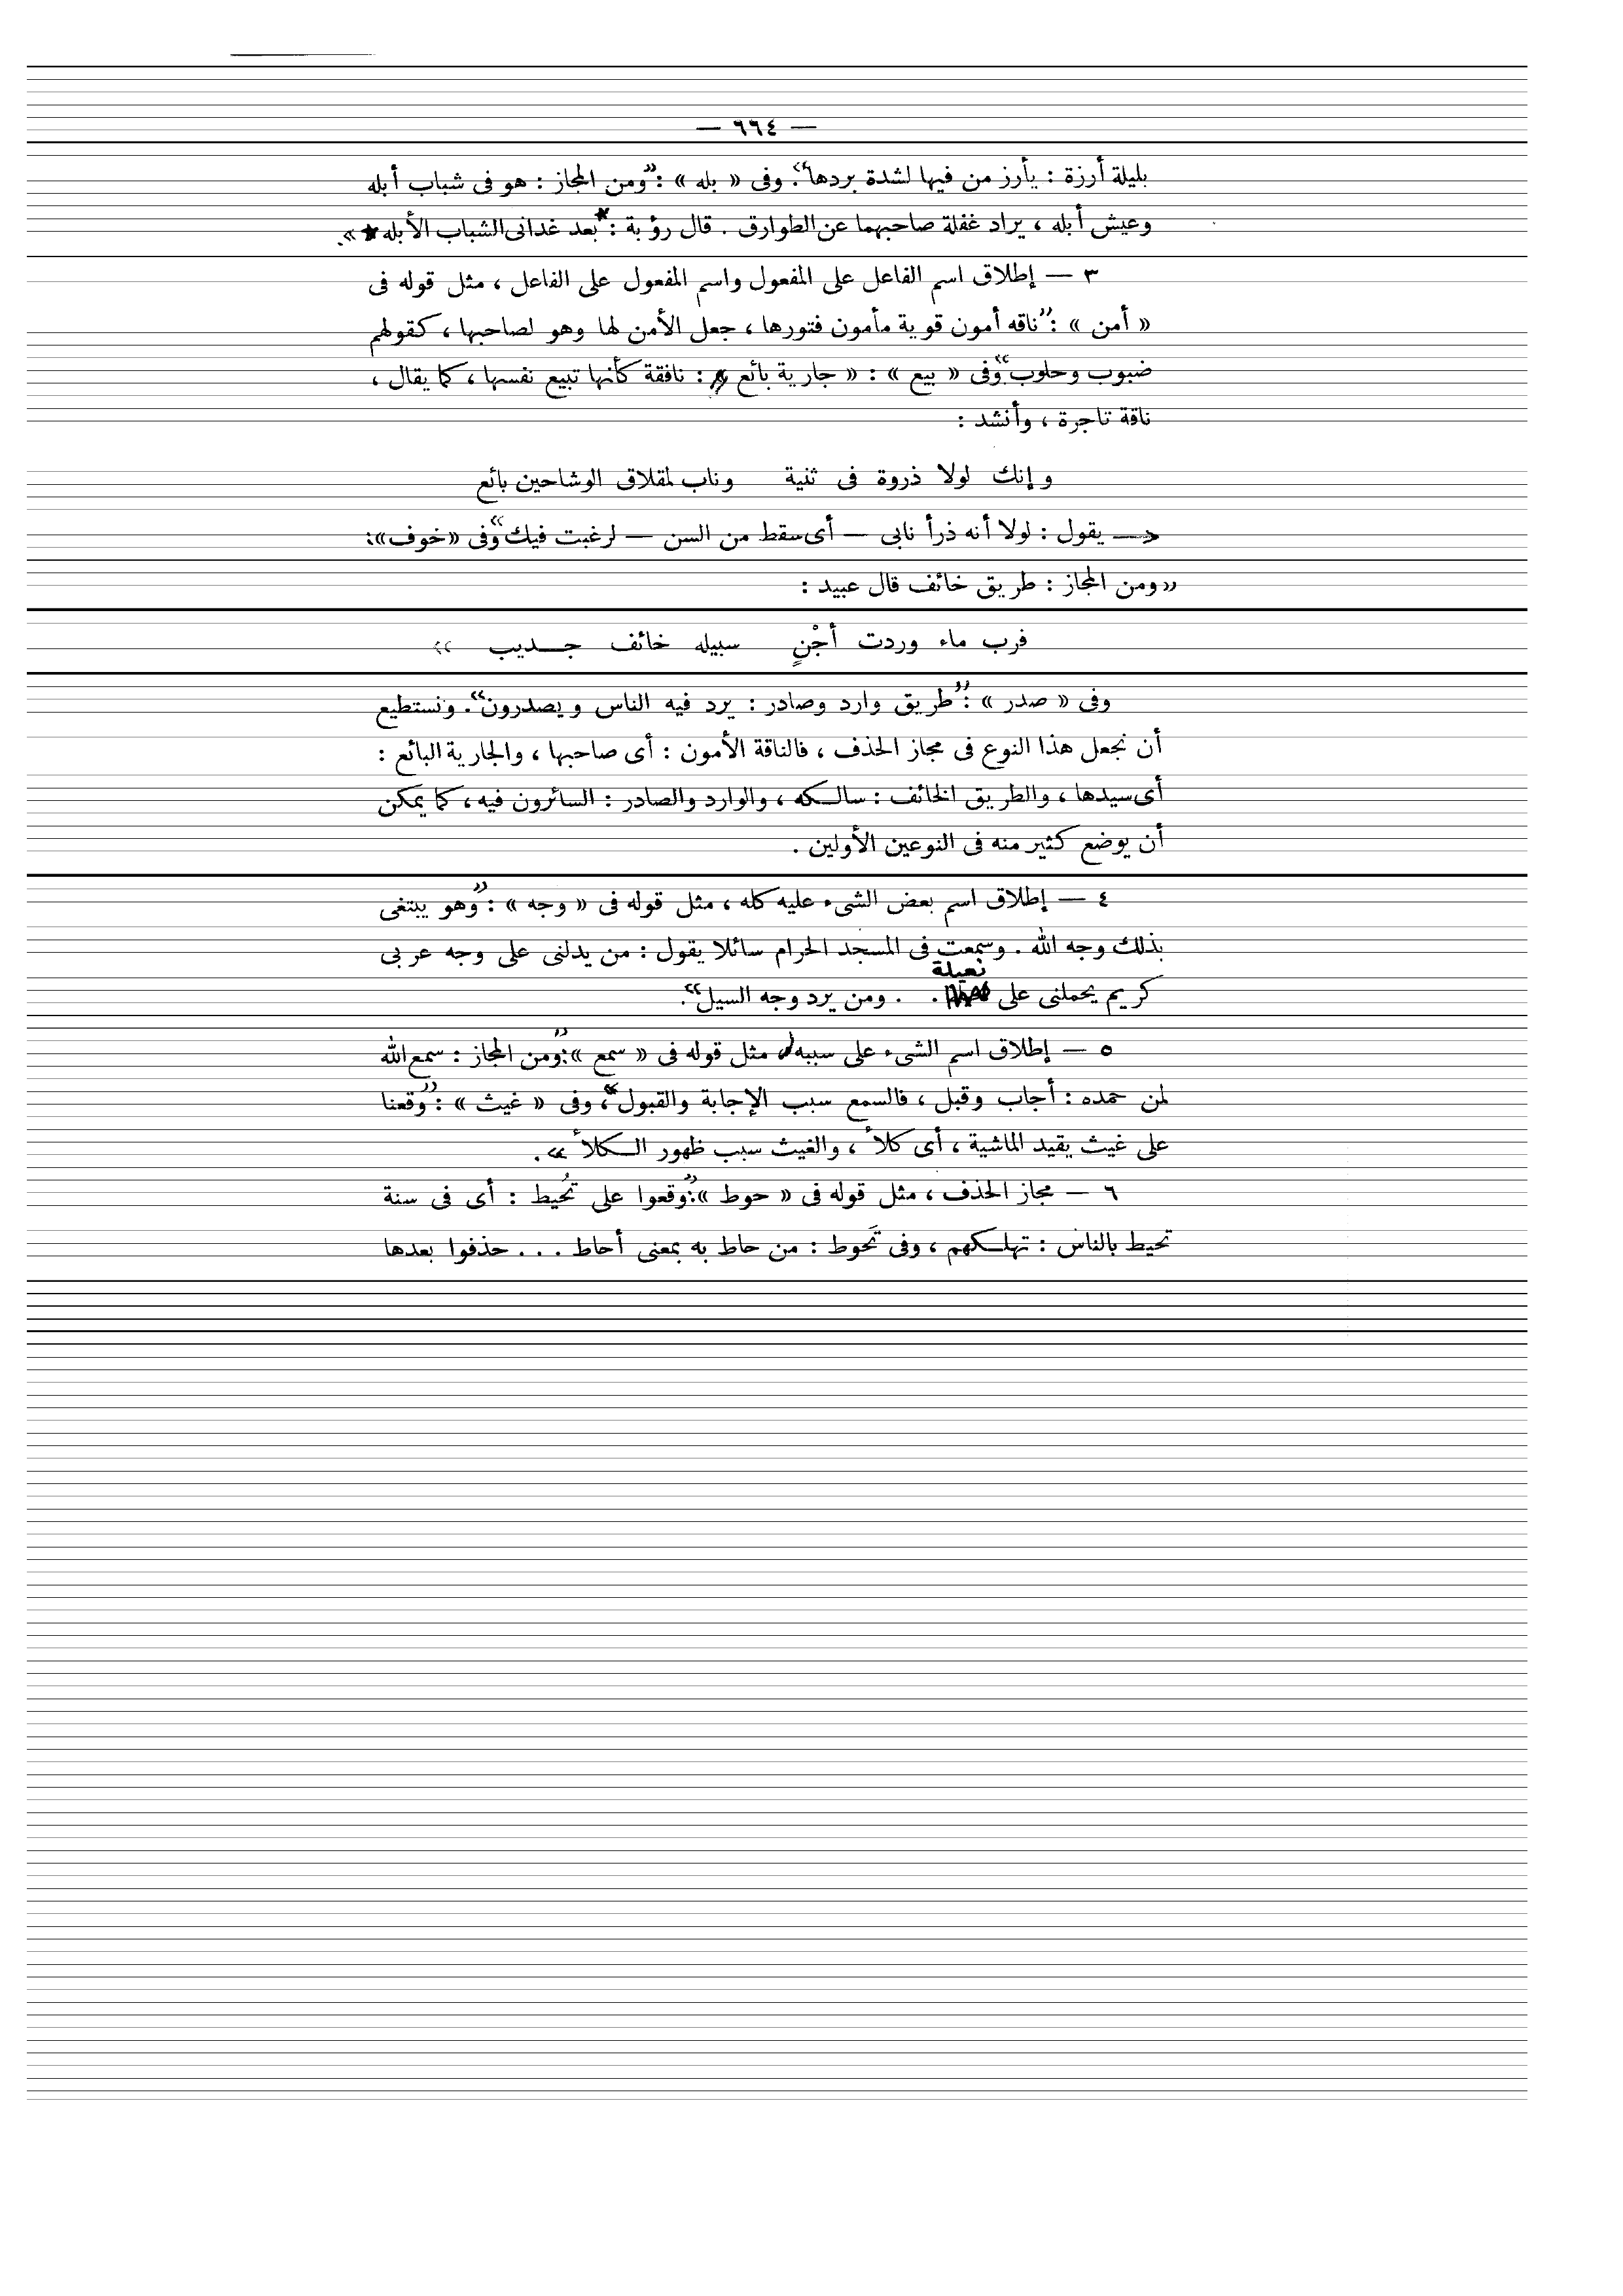 — ٦٦٤ —
بليلة أرزة : يأرز من فيها لشدة بردها». وفى « بله » : «ومن المجاز : هو فى شباب أبله
وعيش أبله ، يراد غفلة صاحبهما عن الطوارق . قال رؤبة : * بعد غدانى الشباب الأبله * ».
٣ — إطلاق اسم الفاعل على المفعول واسم المفعول على الفاعل ، مثل قوله فى
« أمن » : «ناقه أمون قوية مأمون فتورها ، جعل الأمن لها وهو لصاحبها ، كقولهم
ضبوب وحلوب». وفى « بيع » : « جارية بائع : نافقة كأنها تبيع نفسها ، كما يقال ،
ناقة تاجرة ، وأنشد :
وإنك لولا ذروة فى ثنية وناب لمقلاق الوشاحين بائع
— يقول : لولا أنه ذرأ نابى — أى سقط من السن — لرغبت فيك» وفى «خوف»:
«ومن المجاز : طريق خائف قال عبيد :
فرب ماء وردت أجْنٍ سبيله خائف جـــديب »
وفى « صدر » : «طريق وارد وصادر : يرد فيه الناس ويصدرون». ونستطيع
أن نجعل هذا النوع فى مجاز الحذف ، فالناقة الأمون : أى صاحبها ، والجارية البائع :
أى سيدها ، والطريق الخائف : سالكه ، والوارد والصادر : السائرون فيه ، كما يمكن
أن يوضع كثير منه فى النوعين الأولين .
٤ — إطلاق اسم بعض الشىء عليه كله ، مثل قوله فى « وجه » : «وهو يبتغى
بذلك وجه الله . وسمعت فى المسجد الحرام سائلا يقول : من يدلنى على وجه عربى
كريم يحملنى على نعيلة . . ومن يرد وجه السيل».
٥ — إطلاق اسم الشىء على سببه ، مثل قوله فى « سمع »: «ومن المجاز : سمع الله
لمن حمده : أجاب وقبل ، فالسمع سبب الإجابة والقبول»، وفى « غيث » : «وقعنا
على غيث يقيد الماشية ، أى كلأ ، والغيث سبب ظهور الكلأ » .
٦ — مجاز الحذف ، مثل قوله فى « حوط »: «وقعوا على تُحيط : أى فى سنة
تحيط بالناس : تهلكهم ، وفى تَحوط : من حاط به بمعنى أحاط . . . حذفوا بعدها